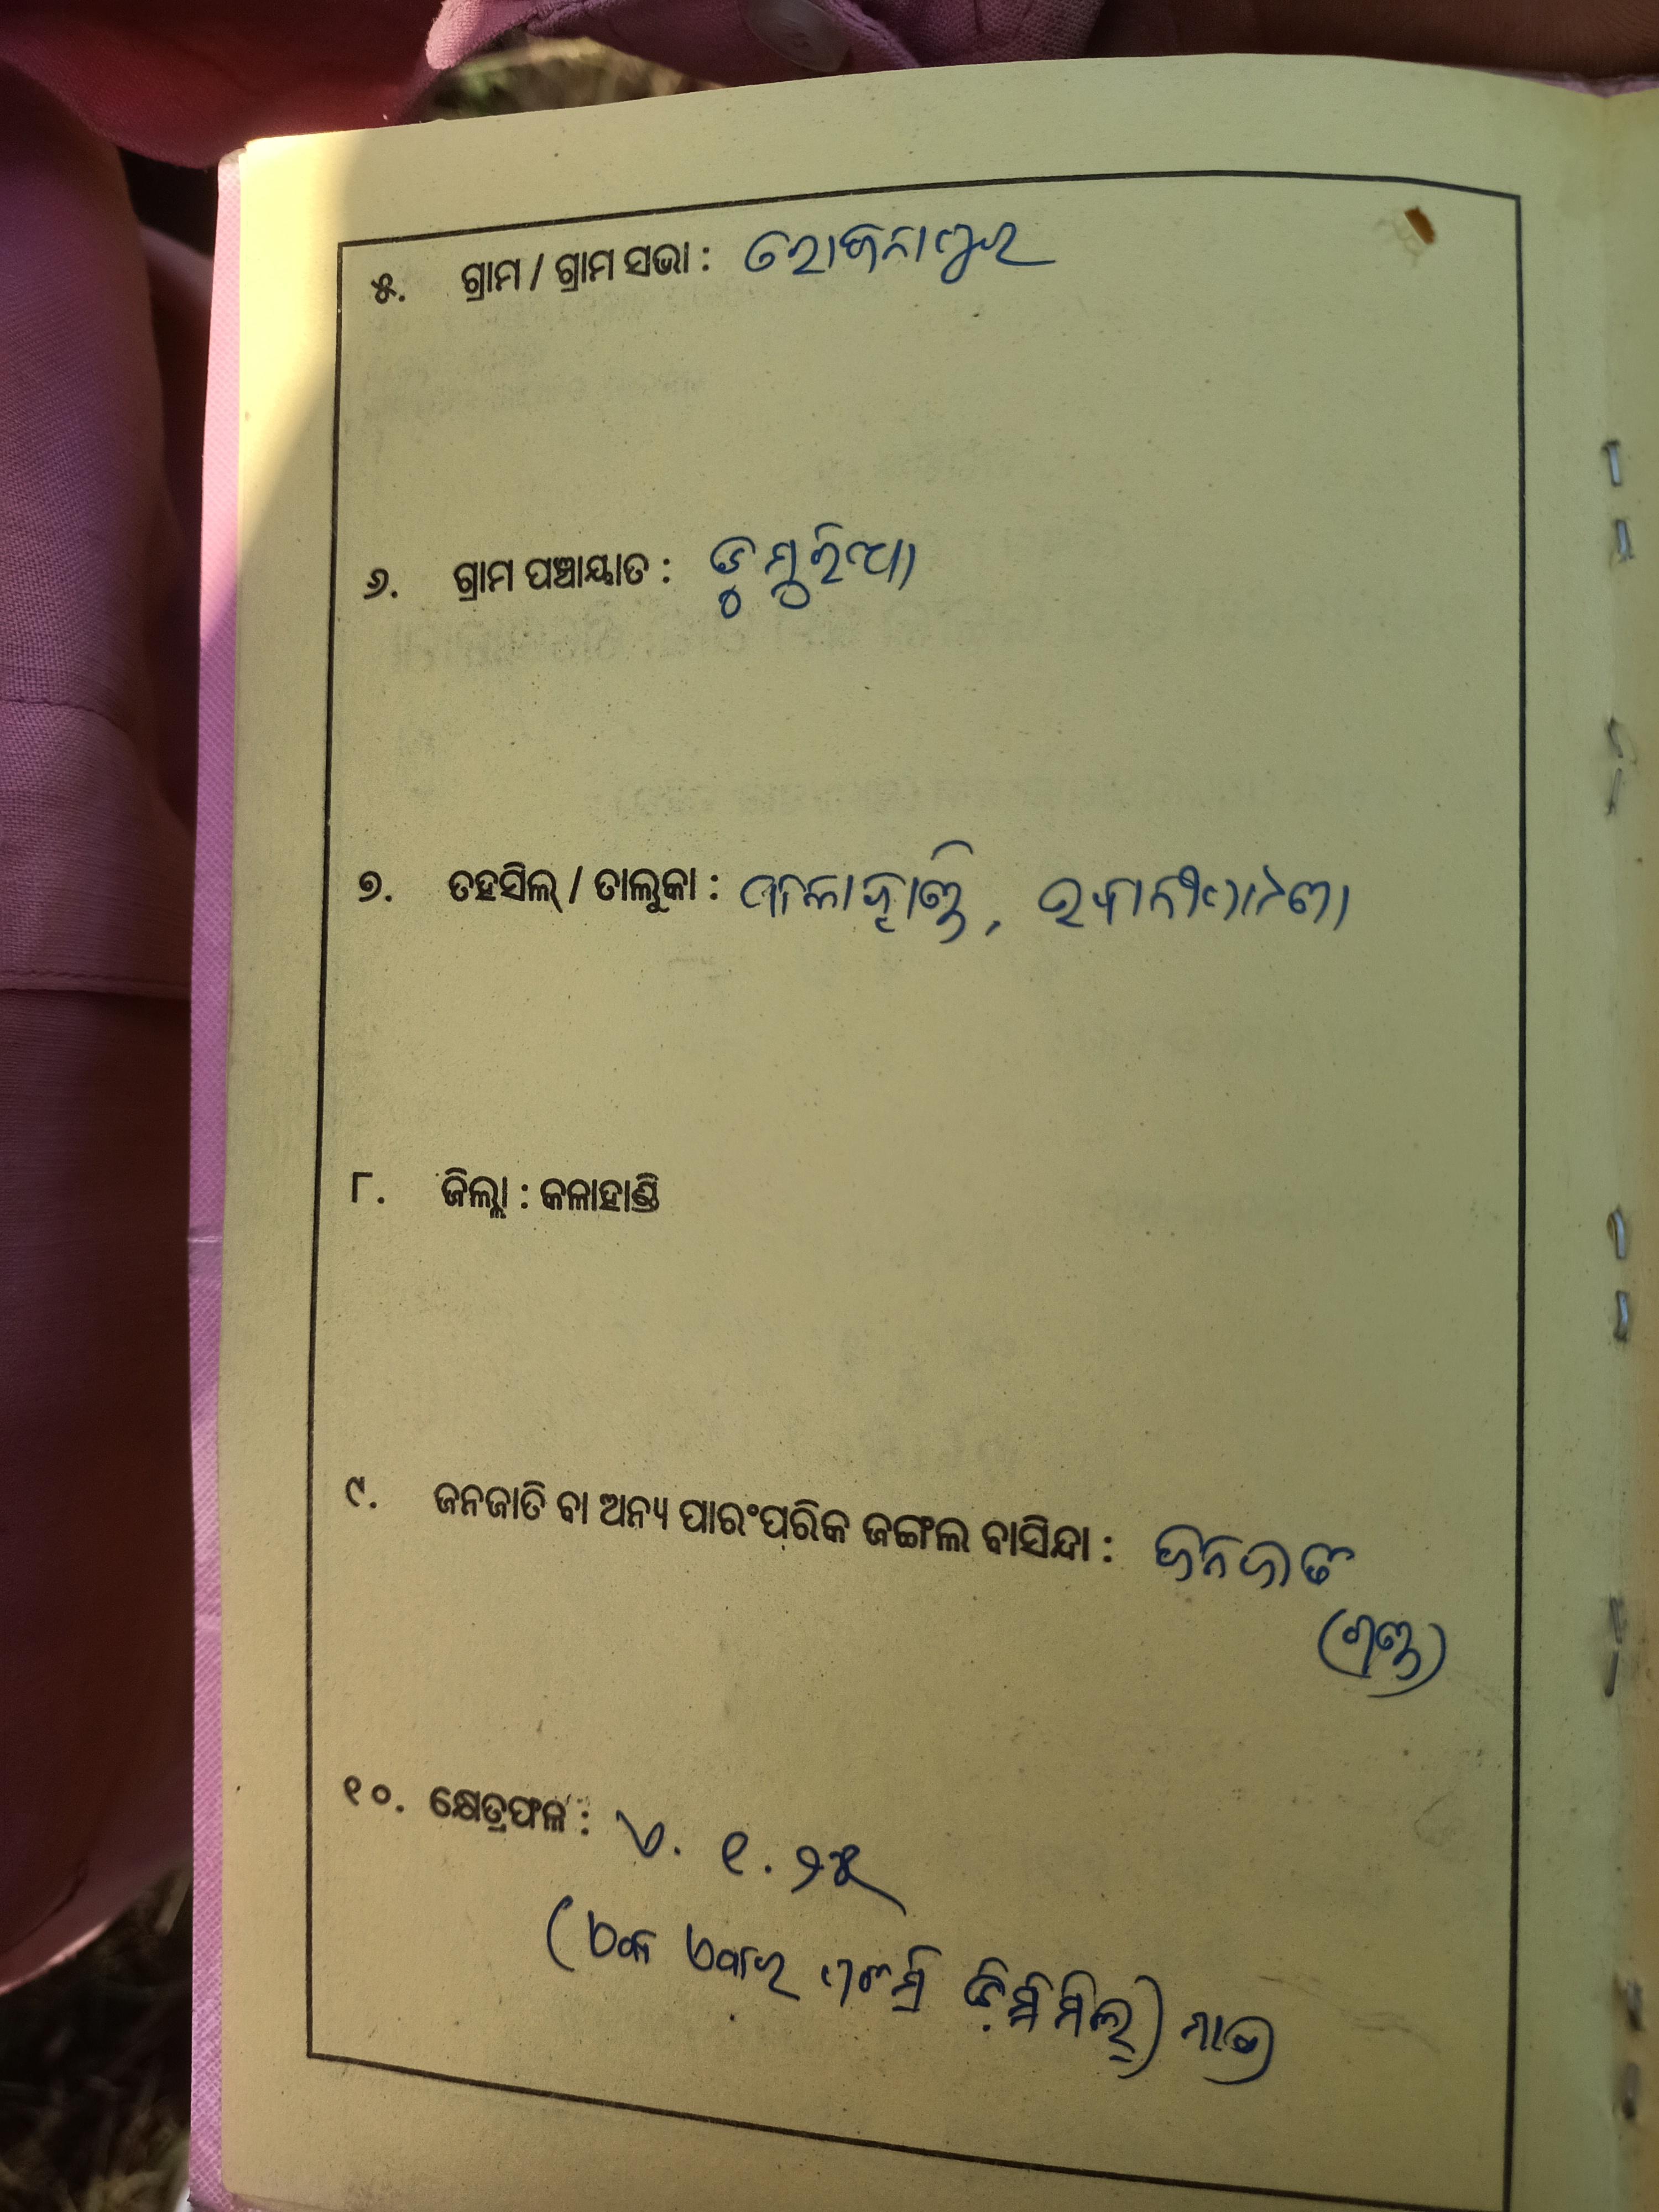 ୫. ଗ୍ରାମ / ଗ୍ରାମ ସଭା : ଭୋଜନାପୁର
୬. ଗ୍ରାମ ପଞ୍ଚାୟାତ : ଡୁମୁରିଆ
୭. ତହସିଲ୍ / ତାଲୁକା : କଳାହାଣ୍ଡି, ଭବାନୀପାଟଣା
୮. ଜିଲ୍ଲା : କଳାହାଣ୍ଡି
୯. ଜନଜାତି ବା ଅନ୍ୟ ପାରଂପରିକ ଜଙ୍ଗଲ ବାସିନ୍ଦା : ଜନଜାତି
୧୦. କ୍ଷେତ୍ରଫଳ : ଏ. ୧.୨୫
(ଏକ ଏକର ପଚିଶି ଡ଼ିସିମିଲ୍) ମାତ୍ର